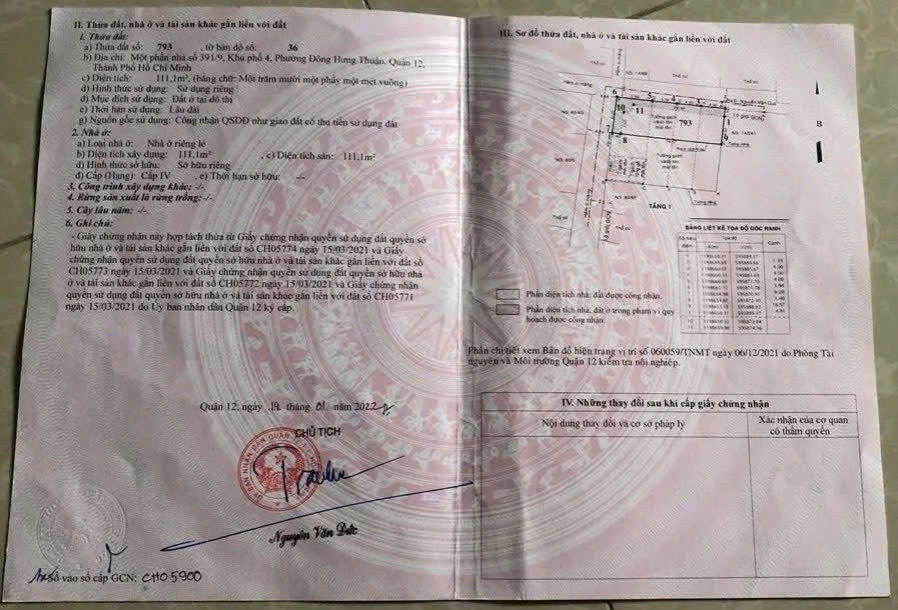 II. Thửa đất, nhà ở và tài sản khác gắn liền với đất
1. Thửa đất:
a) Thửa đất số: 793 , tờ bản đồ số: 36
b) Địa chỉ: Một phần nhà số 391/9, Khu phố 4, Phường Đông Hưng Thuận, Quận 12,
Thành Phố Hồ Chí Minh
c) Diện tích: 111,1m², (bằng chữ: Một trăm mười một phẩy một mét vuông)
d) Hình thức sử dụng: Sử dụng riêng
đ) Mục đích sử dụng: Đất ở tại đô thị
e) Thời hạn sử dụng: Lâu dài
g) Nguồn gốc sử dụng: Công nhận QSDĐ như giao đất có thu tiền sử dụng đất
2. Nhà ở:
a) Loại nhà ở: Nhà ở riêng lẻ
b) Diện tích xây dựng: 111,1m² , c) Diện tích sàn: 111,1m²
d) Hình thức sở hữu: Sở hữu riêng
đ) Cấp (Hạng): Cấp IV , e) Thời hạn sở hữu: -/-
3. Công trình xây dựng khác: -/-
4. Rừng sản xuất là rừng trồng: -/-
5. Cây lâu năm: -/-
6. Ghi chú:
- Giấy chứng nhận này hợp tách thửa từ Giấy chứng nhận quyền sử dụng đất quyền sở
hữu nhà ở và tài sản khác gắn liền với đất số CH05774 ngày 15/03/2021 và Giấy
chứng nhận quyền sử dụng đất quyền sở hữu nhà ở và tài sản khác gắn liền với đất số
CH05773 ngày 15/03/2021 và Giấy chứng nhận quyền sử dụng đất quyền sở hữu nhà
ở và tài sản khác gắn liền với đất số CH05772 ngày 15/03/2021 và Giấy chứng nhận
quyền sử dụng đất quyền sở hữu nhà ở và tài sản khác gắn liền với đất số CH05771
ngày 15/03/2021 do Ủy ban nhân dân Quận 12 ký cấp.
Quận 12, ngày 19 tháng 01 năm 2022
CHỦ TỊCH
Nguyễn Văn Đức
số vào sổ cấp GCN: CH05900
III. Sơ đồ thửa đất, nhà ở và tài sản khác gắn liền với đất
B
793
10
11
6
8
9
TẦNG 1
BẢNG LIỆT KÊ TỌA ĐỘ GÓC RANH
Phần diện tích nhà, đất được công nhận.
Phần diện tích nhà, đất ở trong phạm vi quy
hoạch được công nhận.
Phần chi tiết xem Bản đồ hiện trạng vị trí số 060059/TNMT ngày 06/12/2021 do Phòng Tài
nguyên và Môi trường Quận 12 kiểm tra nội nghiệp.
IV. Những thay đổi sau khi cấp giấy chứng nhận
Nội dung thay đổi và cơ sở pháp lý
Xác nhận của cơ quan
có thẩm quyền